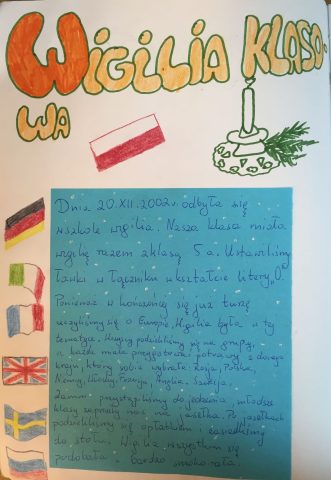 WIGILIA KLASO
WA
Dnia 20.XII.2002r. odbyła się
w szkole wigilia. Nasza klasa miała
wigilię razem z klasą 5a. Ustawiliśmy
ławki w łączniku w kształcie litery „U.
Ponieważ w kończącej się już turze
uczyliśmy się o Europie, Wigilia była w tej
tematyce. Klasy podzieliły się na grupy,
a każda miała przygotować potrawy z danego
kraju, który sobie wybrała: Rosja, Polska,
Niemcy, Włochy, Francja, Anglia, Szwecja.
Zanim przystąpiliśmy do jedzenia, młodsze
klasy zaprosiły nas na jasełka. Po jasełkach
podzieliliśmy się opłatkiem i zasiedliśmy
do stołu. Wigilia wszystkim się
podobała i bardzo smakowała.